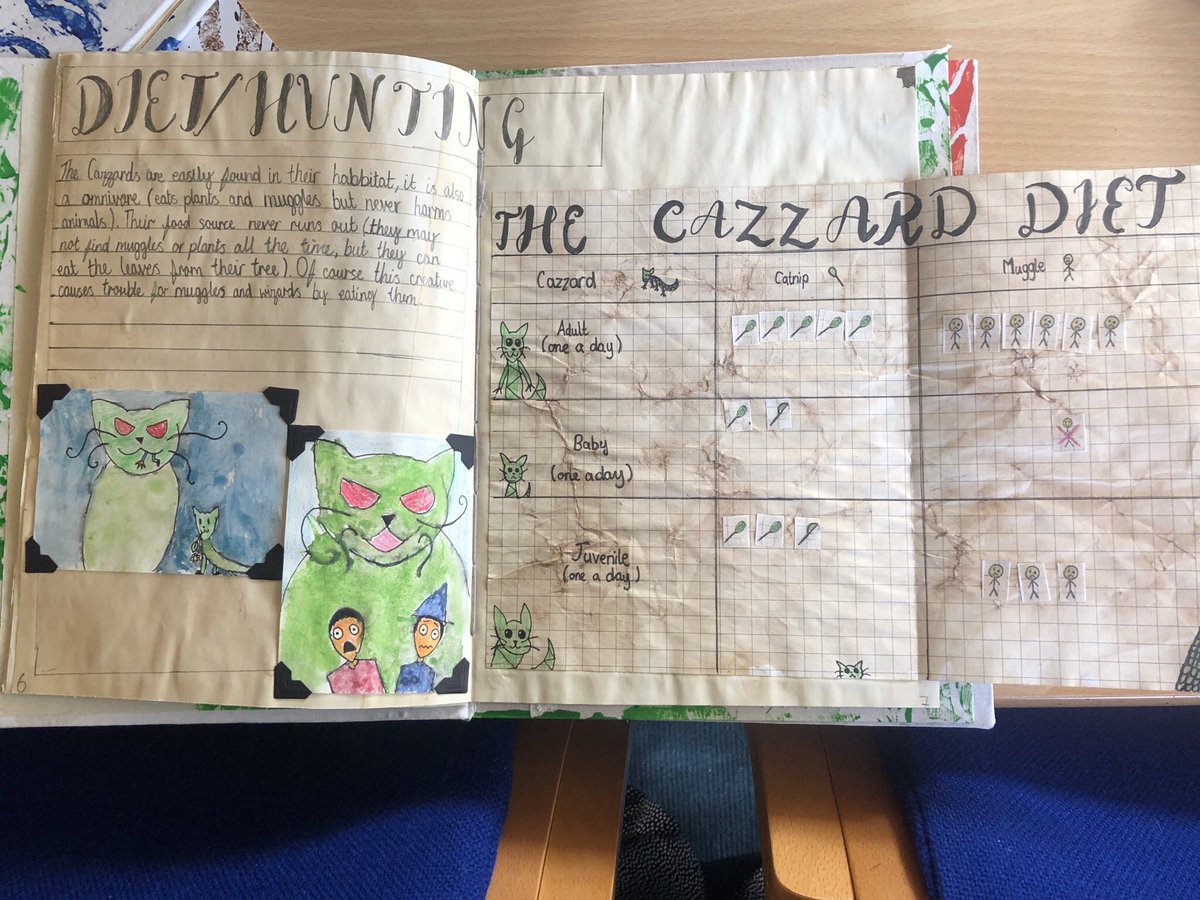 DIET/HUNTING
The Cazzards are easily found in their habbitat, it is also
a omnivare (eats plants and muggles but never harms
animals). Their food source never runs out (they may
not find muggles or plants all the time, but they can
eat the leaves from their tree). Of course this creature
causes trouble for muggles and wizards by eating them.
6
THE CAZZARD DIET
Cazzard Catnip Muggle
Adult
(one a day)
Baby
(one a day)
Juvenile
(one a day)
7